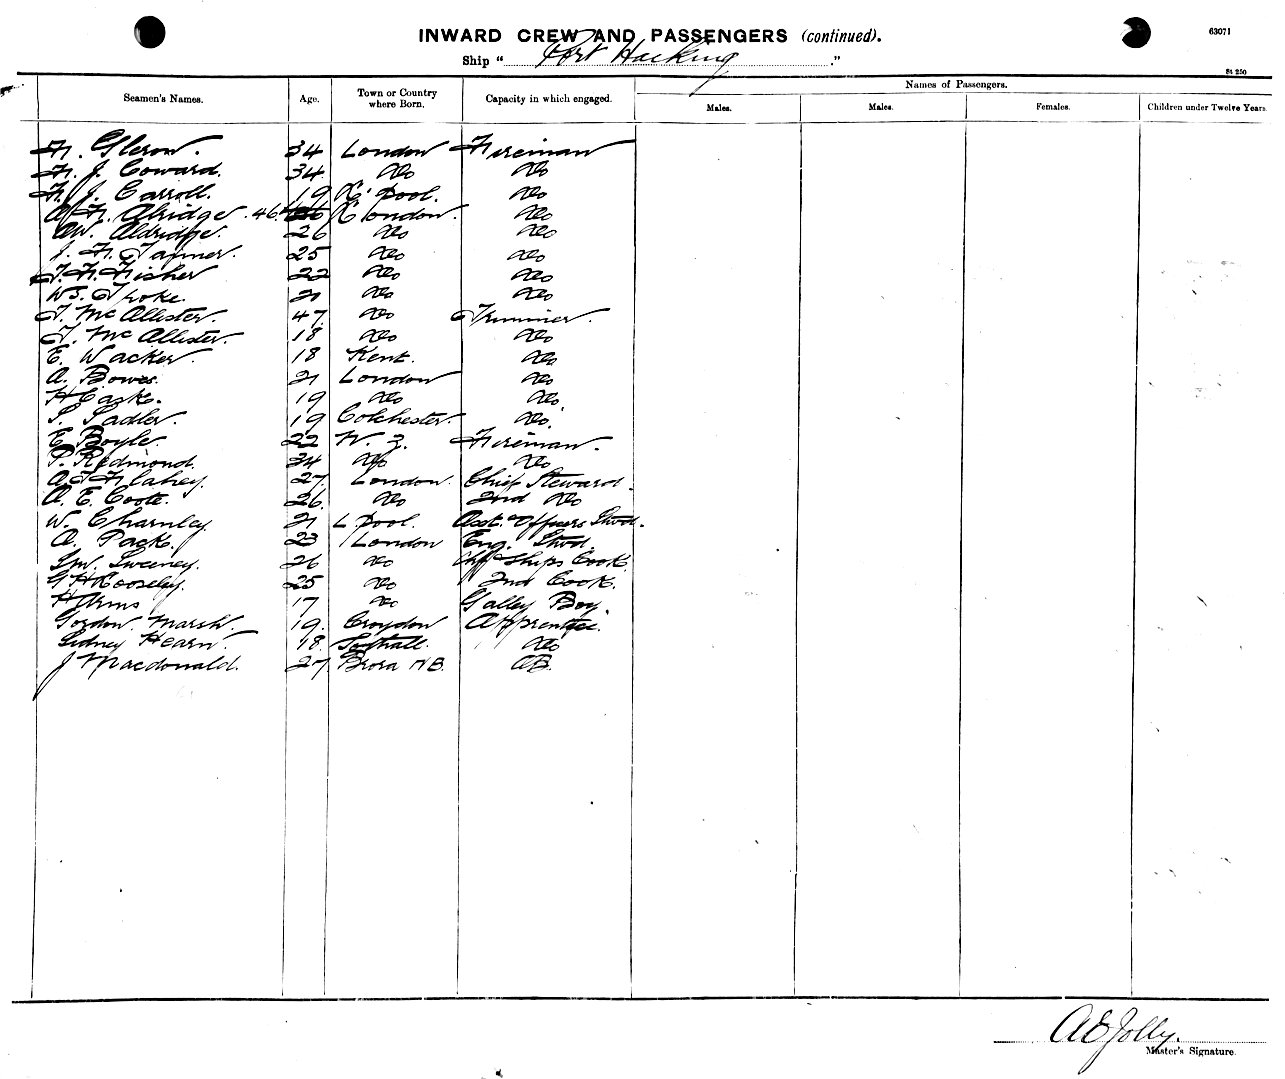 63071
INWARD CREW AND PASSENGERS (continued).
Ship "Port Hacking."
St 250
Seamen's Names. Age. Town or Country where Born. Capacity in which engaged. Names of Passengers.
Males. Males. Females. Children under Twelve Years.
34 London Fireman
J. Coward. 34 do do
J. Carroll. 19 L'Pool. do
Alridge. 46 London. do
AW. Aldridge. 26 do do
J. H. Tanner. 25 do do
Fisher 22 do do
21 do do
T. McAllister. 47 do Trimmer.
T. McAllister. 18 do do
E. Wacker. 18 Kent. do
A. Bowes. 21 London do
H 19 do do
S. Sadler. 19 Colchester. do.
E. Boyle. 22 N. Z. Fireman.
P. Redmond. 34 do do
A. Flahey. 27 London. Chief Steward.
A. E. Coote. 26. do 2nd do
W. Charnley 21 L'pool. Asst. Officers Stwd.
A. Pack. 23 London Eng. Stwd
Sweeney. 26 do Chf Ships Cook.
25 do 2nd Cook.
H Arms 17 do Galley Boy.
Gordon Marsh. 19. Croydon Apprentice.
Sidney Hearn. 18. do
J Macdonald. 27 Brora NB. AB.
AEJolly.
Master's Signature.